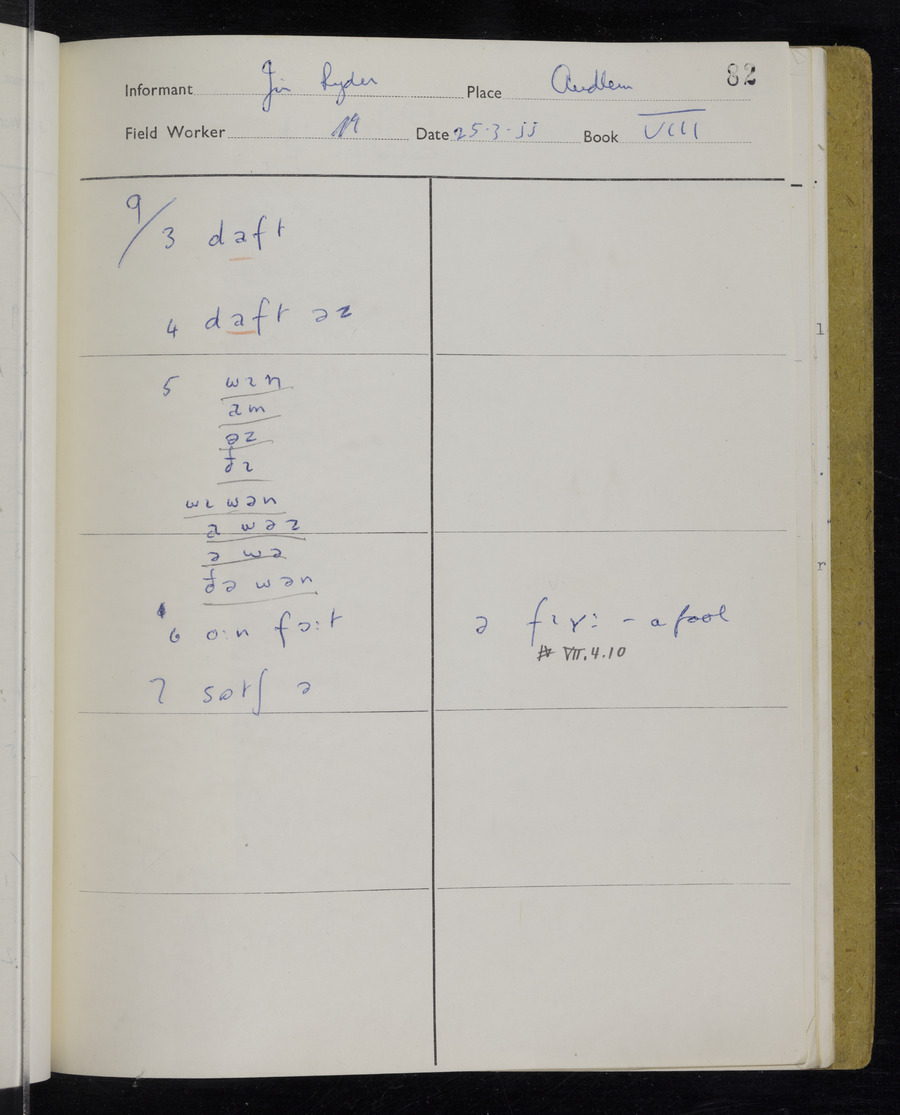 82
Informant Jim Ryder Place Audlem
Field Worker Date 25·3·55 Book VIII
9/3 daft
4 daft əz
5 wɪn
am
əz
ðɪ
wɪ wən
a wəz
ə wə
ðə wən
6 ɔ:n fɔ:t
7 sɒtʃ ə
ə fɪγ: - a fool
# VII.4.10
l
r